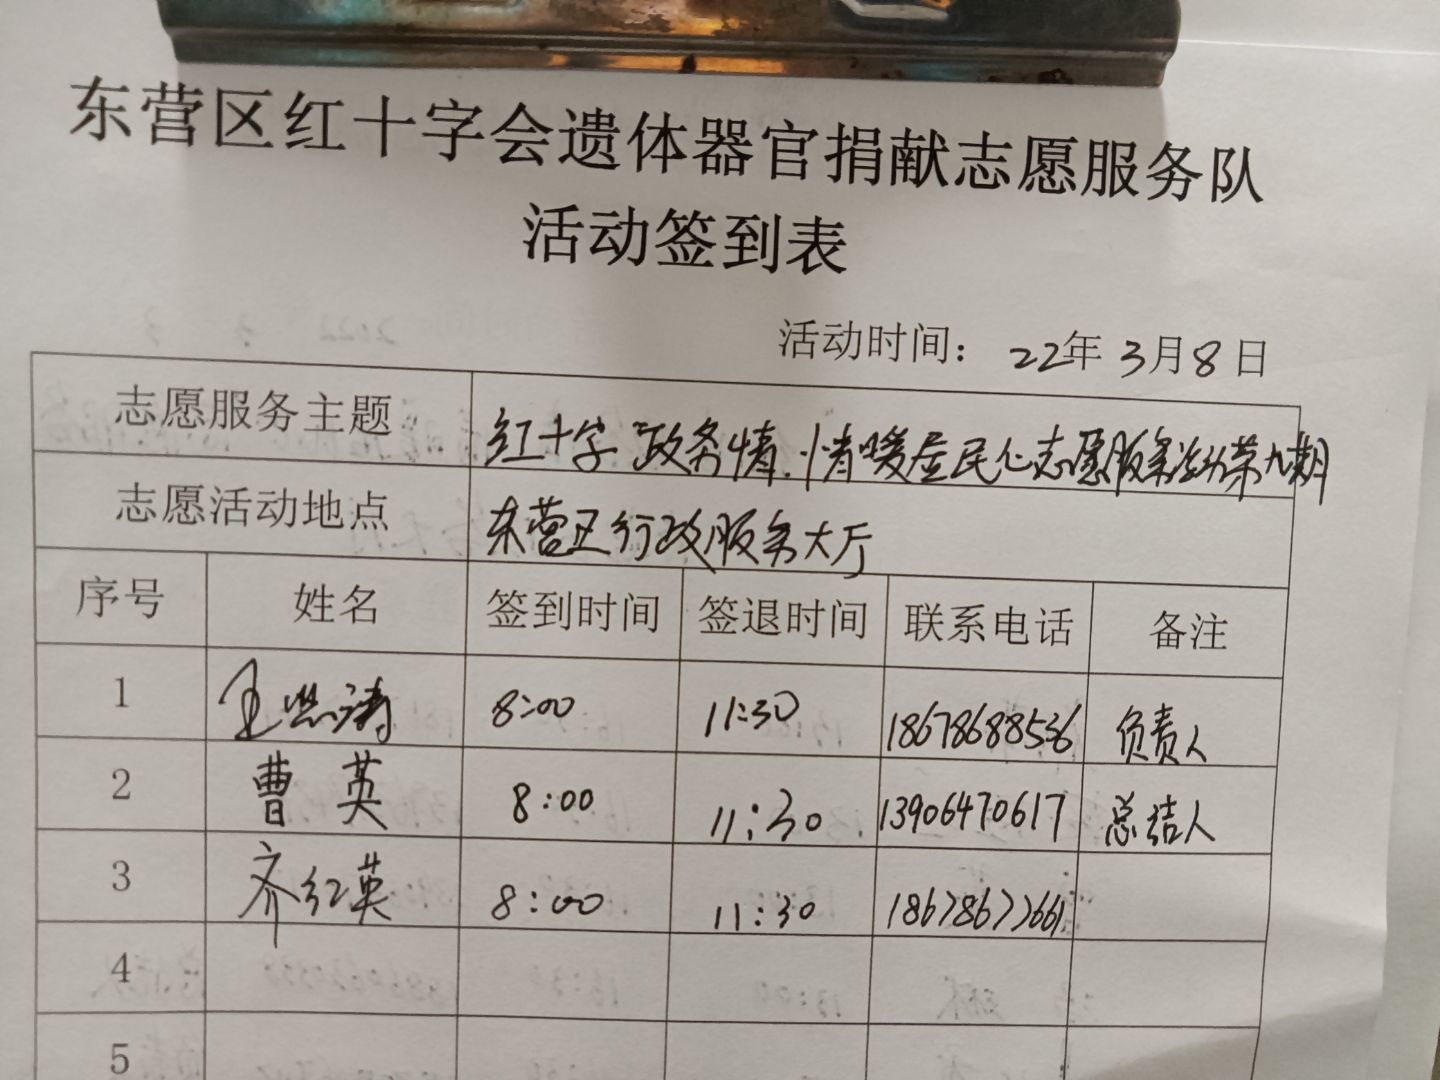 东营区红十字会遗体器官捐献志愿服务队
活动签到表
活动时间: 22年3月8日
志愿服务主题 红十字"政务情.情暖居民心志愿服务活动第九期
志愿活动地点 东营区行政服务大厅
序号 姓名 签到时间 签退时间 联系电话 备注
1 王 8:00 11:30 18678688536 负责人
2 曹英 8:00 11:30 13906470617 总结人
3 齐红英 8:00 11:30 18678677661
4
5